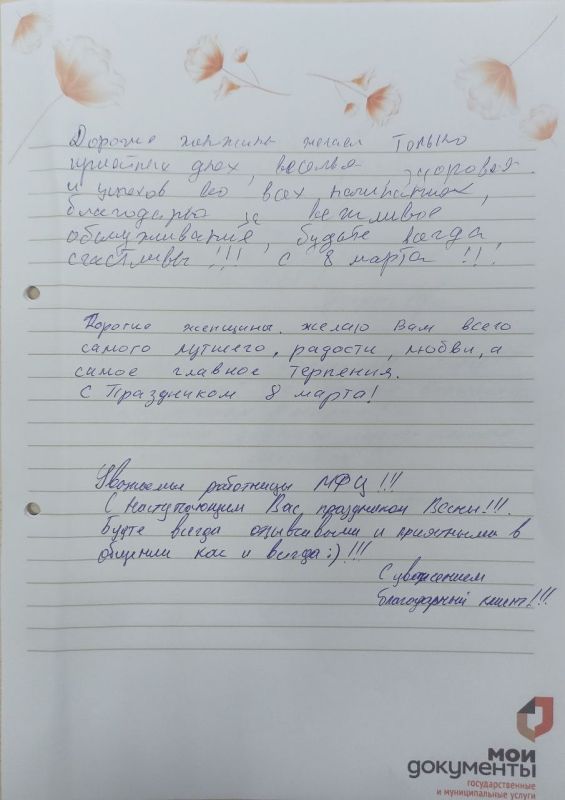 Дорогие женщины желаем только
приятных днех, веселья, здоровья.
и успехов во всех начинаниях,
благодарю за вежливое
обслуживание, будьте всегда,
счастливы!!! с 8 марта!!!
Дорогие женщины. желаю Вам всего
самого лутшего, радости, любви, а
самое главное Терпения.
С Праздником 8 марта!
Уважаемые работницы МФЦ!!!
С Наступающим Вас, праздником Весны!!!.
Будте всегда отзывчивыми и приятными в
общении как и всегда:)!!!
С уважением
благодарный клиент!!!
мои
документы
государственные
и муниципальные услуги